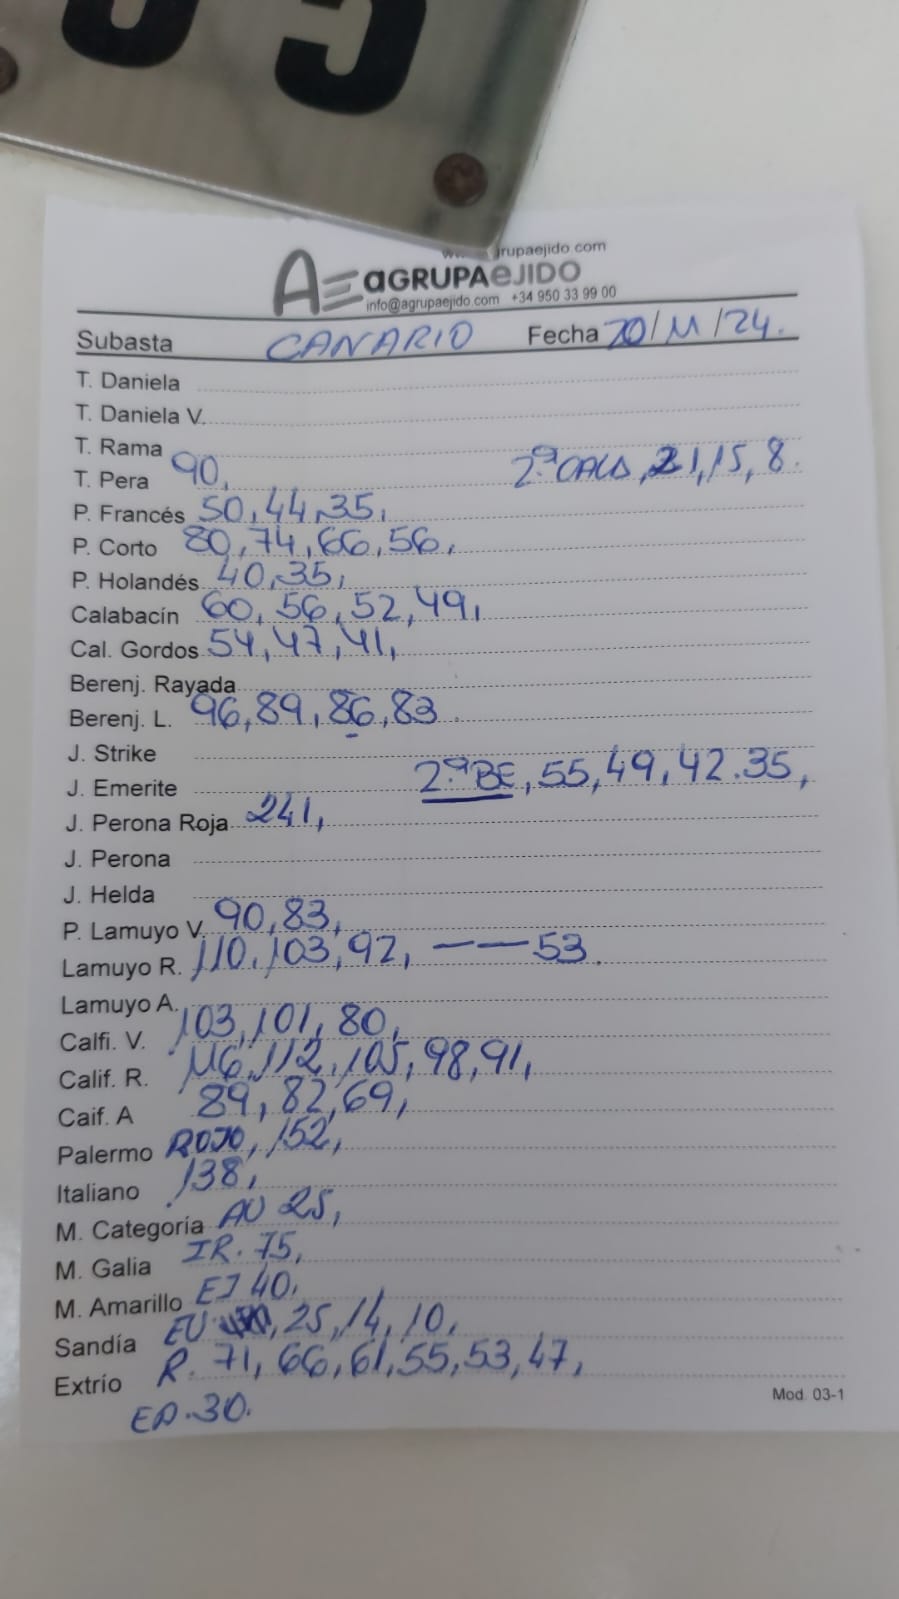 grupaejido.com
AE aGRUPAeJIDO
info@agrupaejido.com +34 950 33 99 00
Subasta CANARIO Fecha 20/11/24.
T. Daniela
T. Daniela V.
T. Rama
T. Pera 90, 2ª CALA, 21, 15, 8.
P. Francés 50, 44, 35,
P. Corto 80, 74, 66, 56,
P. Holandés 40, 35,
Calabacín 60, 56, 52, 49,
Cal. Gordos 54, 47, 41,
Berenj. Rayada
Berenj. L. 96, 89, 86, 83.
J. Strike
J. Emerite 2ª BE, 55, 49, 42. 35,
J. Perona Roja 241,
J. Perona
J. Helda
P. Lamuyo V. 90, 83,
Lamuyo R. 110, 103, 92, — — 53.
Lamuyo A.
Calfi. V. 103, 101, 80,
Calif. R. 116, 112, 105, 98, 91,
Caif. A 89, 82, 69,
Palermo ROJO, 152,
Italiano 138,
M. Categoría AU 25,
M. Galia IR. 75,
M. Amarillo EJ 40.
Sandía EU 25, 14, 10,
Extrío R. 71, 66, 61, 55, 53, 47,
Mod. 03-1
30.